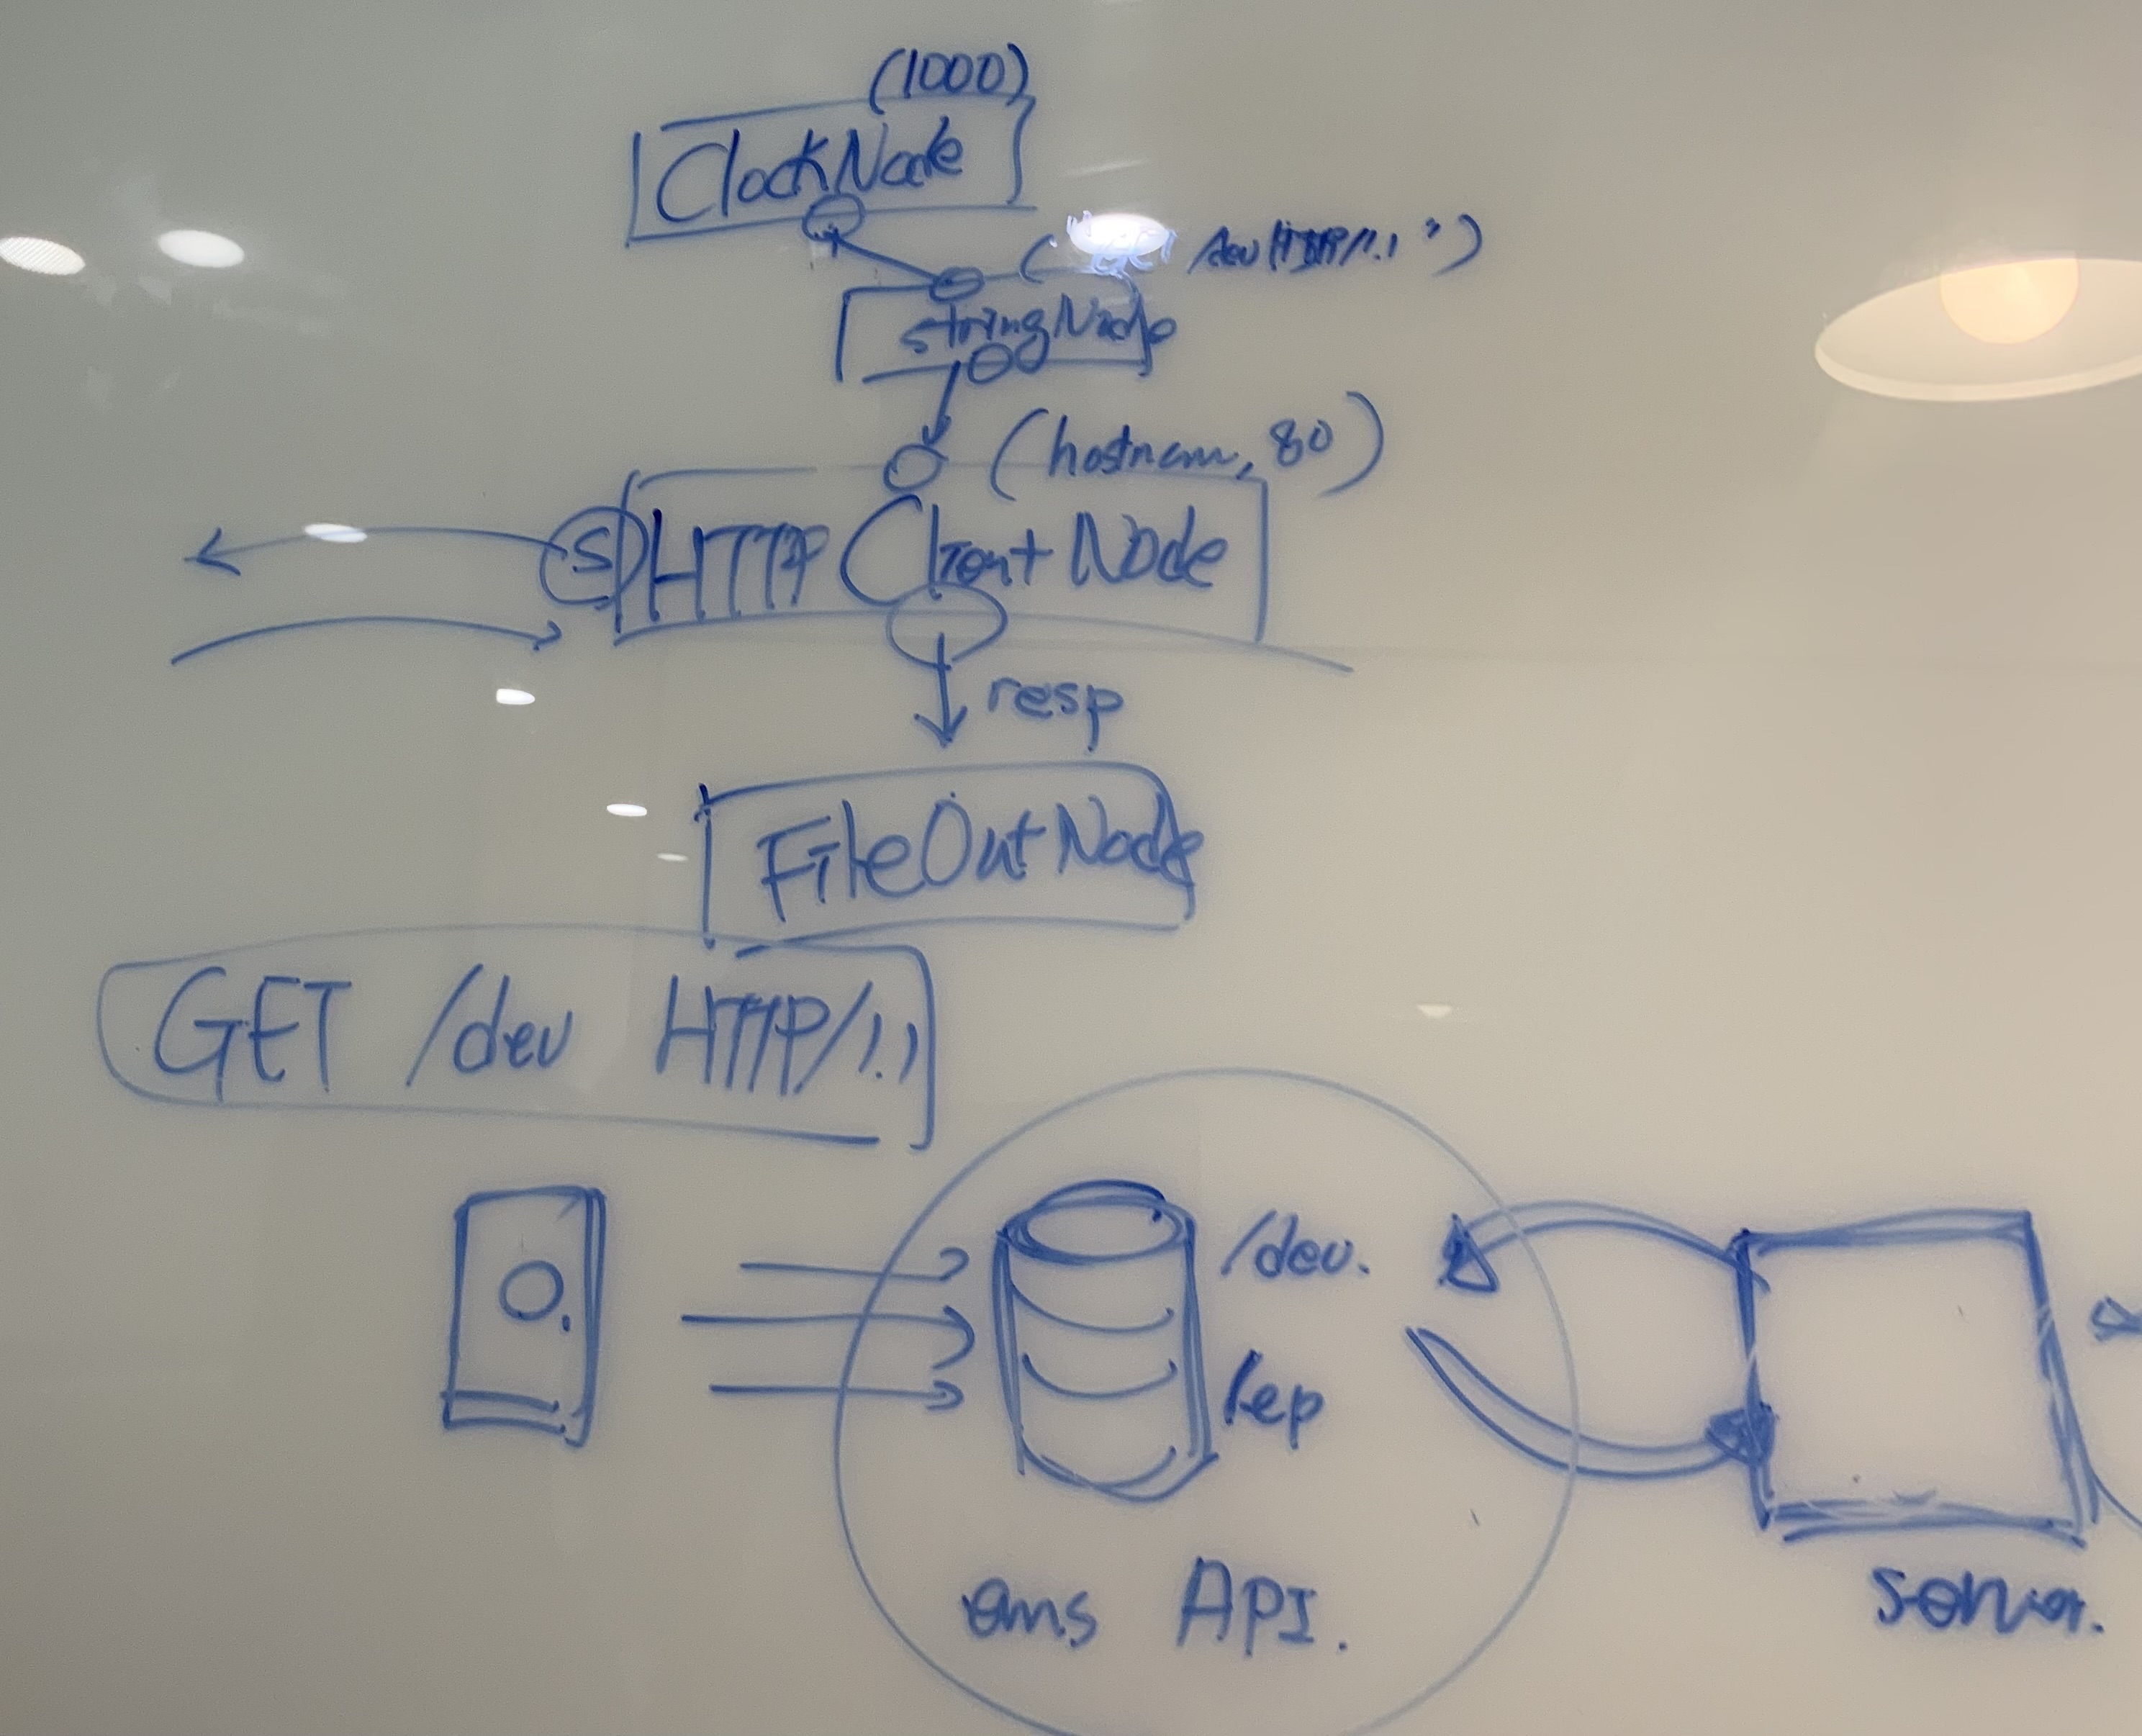 (1000)
ClockNode
/dev HTTP/1.1 ")
stringNode
(hostnam, 80)
S HTTP Client Node
resp
FileOutNode
GET /dev HTTP/1.1
/dev.
/ep
ems API.
server.